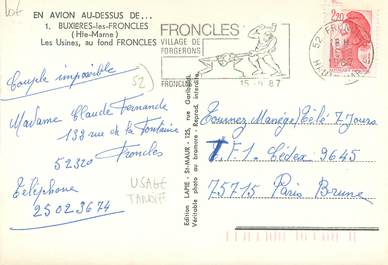 Lot
EN AVION AU-DESSUS DE...
1. BUXIÈRES-les-FRONCLES
(Hte-Marne)
Les Usines, au fond FRONCLES
FRONCLES
VILLAGE DE
FORGERONS
FRONCLES
15 87
52 FR
HAUTE
2,20
Couple impossible
52
Madame Claude Fernande
138 rue de la Fontaine
52320 Froncles
Téléphone
25 02 3674
USAGE
TARDIF
Edition LAPIE - St-MAUR - 125, rue Garibaldi
Véritable photo au bromure - Reprod. interdite
Tournez Manège/Télé 7 Jours
T.F1. Cédex 9645
75715 Paris Brune